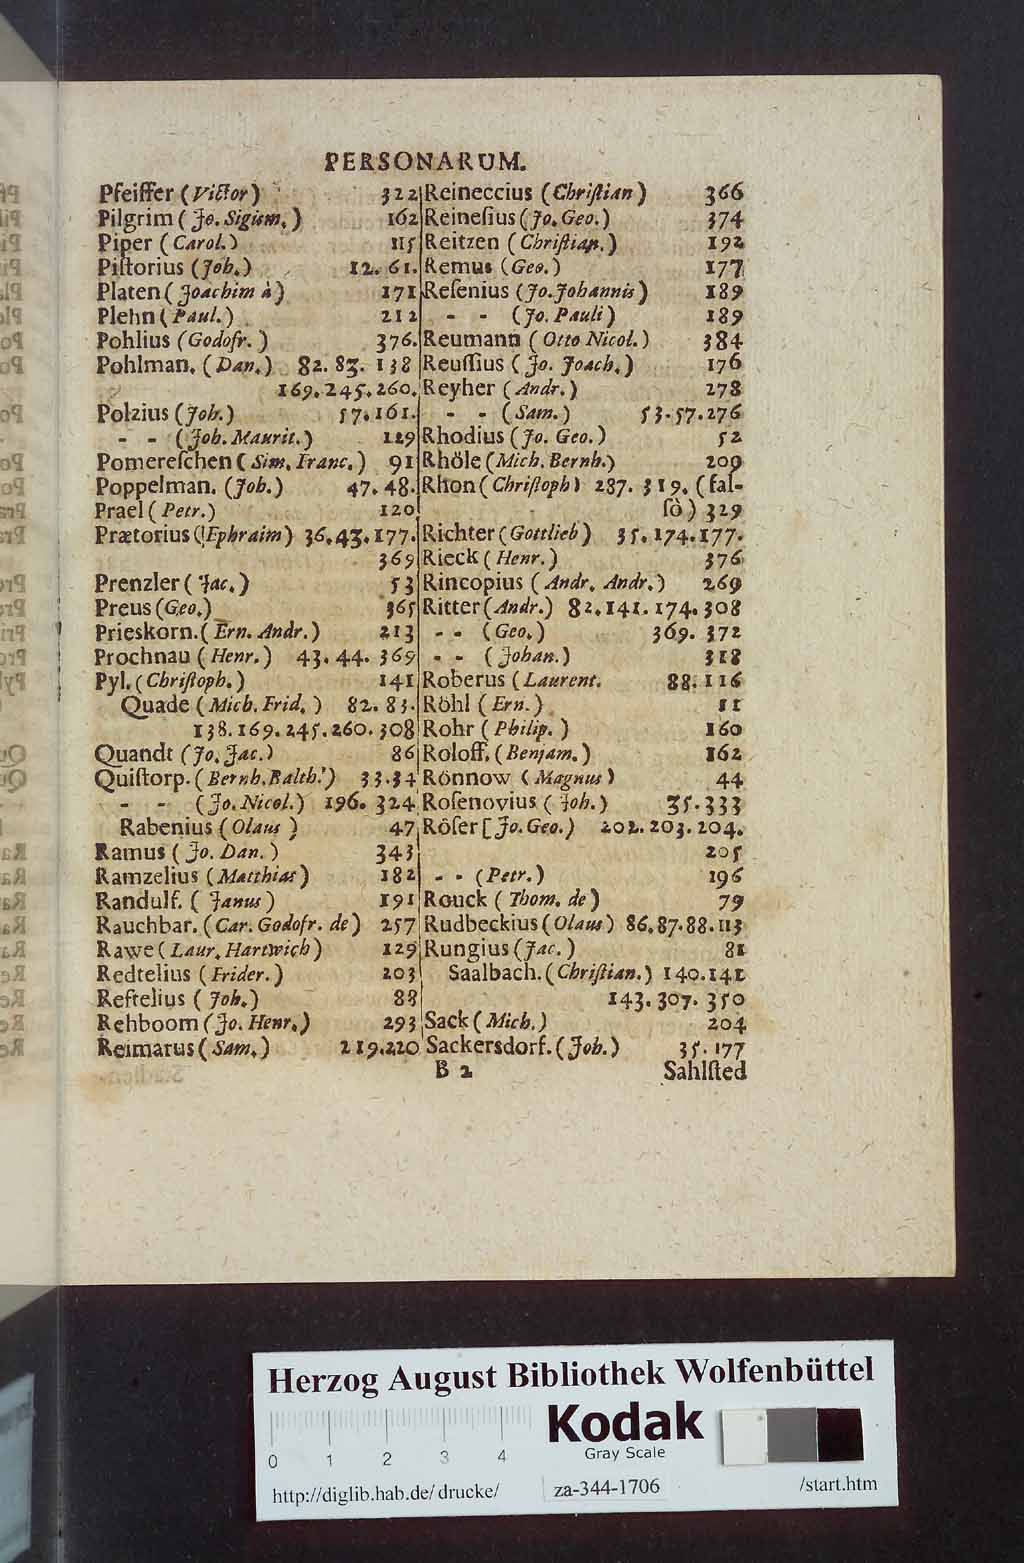 PERSONARUM.
Pfeiffer (Victor) 322
Pilgrim (Jo. Sigism.) 162
Piper (Carol.) 115
Piſtorius (Joh.) 12. 61.
Platen (Joachim à) 171
Plehn (Paul.) 212
Pohlius (Godofr.) 376.
Pohlman. (Dan.) 82. 83. 138
169. 245. 260.
Polzius (Joh.) 57. 161.
- - (Joh. Maurit.) 129
Pomereſchen (Sim. Franc.) 91
Poppelman. (Joh.) 47. 48.
Prael (Petr.) 120
Prætorius (Ephraim) 36. 43. 177.
369
Prenzler (Jac.) 53
Preus (Geo.) 365
Prieskorn. (Ern. Andr.) 213
Prochnau (Henr.) 43. 44. 369
Pyl. (Chriſtoph.) 141
Quade (Mich. Frid.) 82. 83.
138. 169. 245. 260. 308
Quandt (Jo. Jac.) 86
Quiſtorp. (Bernh. Balth.) 33. 34
- - (Jo. Nicol.) 196. 324
Rabenius (Olaus) 47
Ramus (Jo. Dan.) 343
Ramzelius (Matthias) 182
Randulf. (Janus) 191
Rauchbar. (Car. Godofr. de) 257
Rawe (Laur. Hartwich) 129
Redtelius (Frider.) 203
Reftelius (Joh.) 88
Rehboom (Jo. Henr.) 293
Reimarus (Sam.) 219. 220
Reineccius (Chriſtian) 366
Reineſius (Jo. Geo.) 374
Reitzen (Chriſtian.) 192
Remus (Geo.) 177
Reſenius (Jo. Johannis) 189
- - (Jo. Pauli) 189
Reumann (Otto Nicol.) 384
Reuſſius (Jo. Joach.) 176
Reyher (Andr.) 278
- - (Sam.) 53. 57. 276
Rhodius (Jo. Geo.) 52
Rhöle (Mich. Bernh.) 209
Rhon (Chriſtoph) 287. 319. (fal-
ſò) 329
Richter (Gottlieb) 35. 174. 177.
Rieck (Henr.) 376
Rincopius (Andr. Andr.) 269
Ritter (Andr.) 82. 141. 174. 308
- - (Geo.) 369. 372
- - (Johan.) 318
Roberus (Laurent. 88. 116
Röhl (Ern.) 11
Rohr (Philip.) 160
Roloff. (Benjam.) 162
Rönnow (Magnus) 44
Roſenovius (Joh.) 35. 333
Röſer [Jo. Geo.) 202. 203. 204.
205
- - (Petr.) 196
Rouck (Thom. de) 79
Rudbeckius (Olaus) 86. 87. 88. 113
Rungius (Jac.) 81
Saalbach. (Chriſtian.) 140. 141
143. 307. 350
Sack (Mich.) 204
Sackersdorf. (Joh.) 35. 177
B 2 Sahlſted
Herzog August Bibliothek Wolfenbüttel
Kodak
Gray Scale
0 1 2 3 4
http://diglib.hab.de/drucke/ za-344-1706 /start.htm